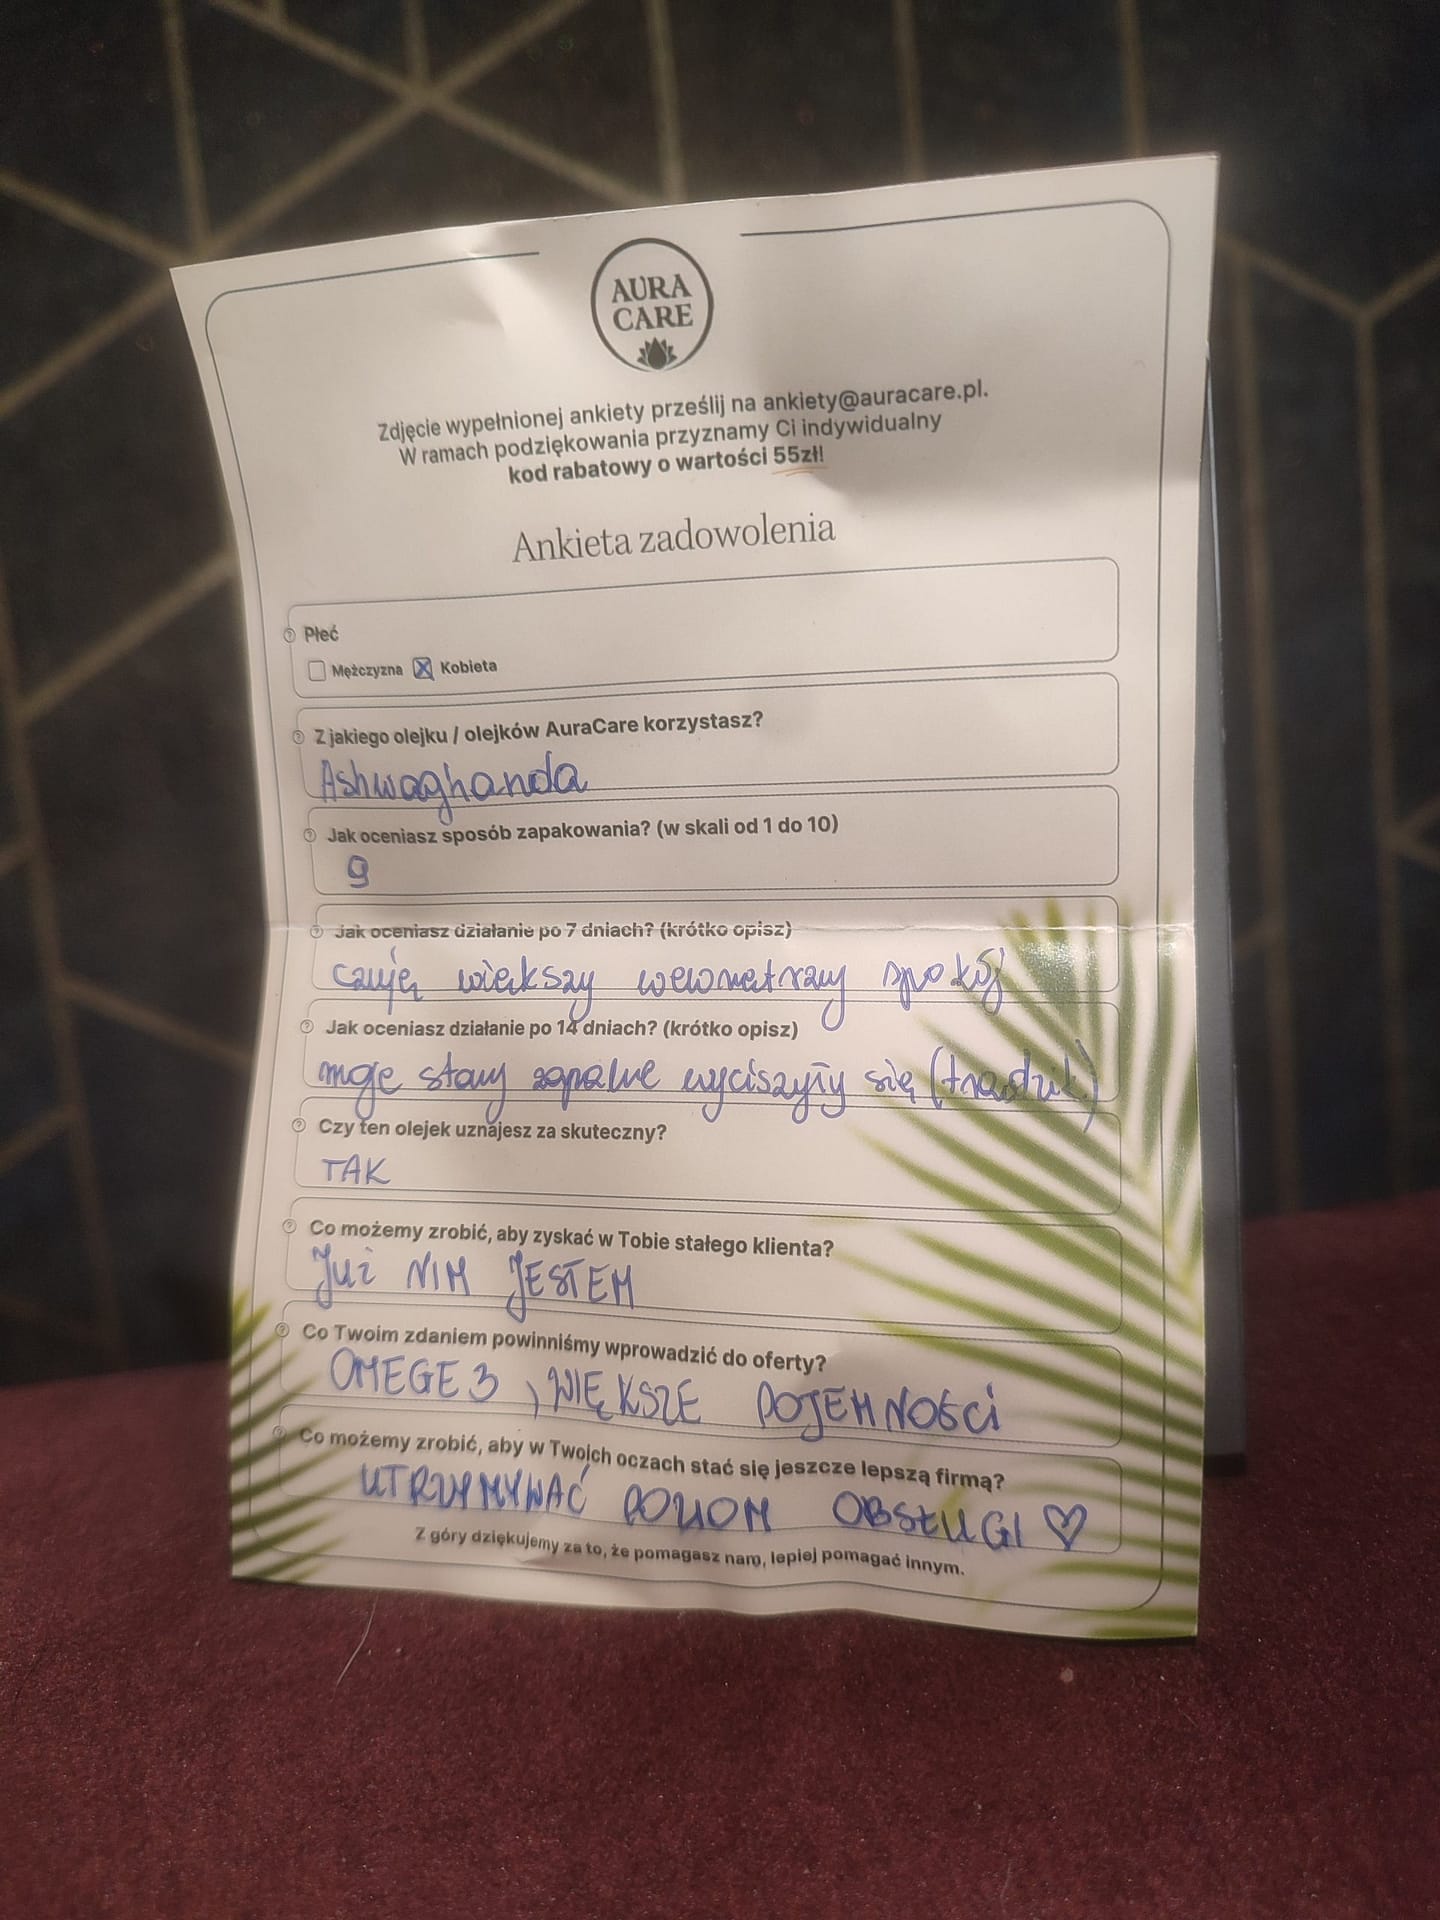 AURA
CARE
Zdjęcie wypełnionej ankiety prześlij na ankiety@auracare.pl.
W ramach podziękowania przyznamy Ci indywidualny
kod rabatowy o wartości 55zł!
Ankieta zadowolenia
Płeć
Mężczyzna Kobieta
Z jakiego olejku / olejków AuraCare korzystasz?
Ashwaghanda
Jak oceniasz sposób zapakowania? (w skali od 1 do 10)
9
Jak oceniasz działanie po 7 dniach? (krótko opisz)
czuję większy wewnętrzny spokój
Jak oceniasz działanie po 14 dniach? (krótko opisz)
moje stany zapalne wyciszyły się (trądzik)
Czy ten olejek uznajesz za skuteczny?
TAK
Co możemy zrobić, aby zyskać w Tobie stałego klienta?
Już NIM JESTEM
Co Twoim zdaniem powinniśmy wprowadzić do oferty?
OMEGE 3, WIĘKSZE POJEMNOŚCI
Co możemy zrobić, aby w Twoich oczach stać się jeszcze lepszą firmą?
UTRZYMYWAĆ POZIOM OBSŁUGI ♡
Z góry dziękujemy za to, że pomagasz nam, lepiej pomagać innym.